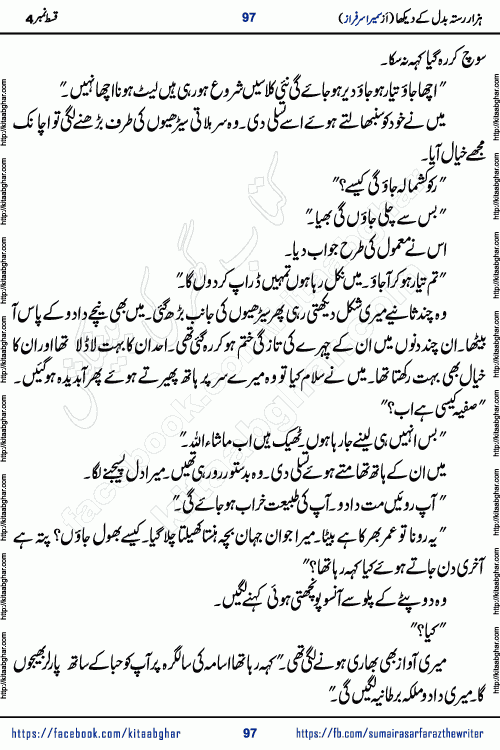 ہزار رستہ بدل کے دیکھا (از سمیرا سرفراز) 97 قسط نمبر 4
سوچ کر رہ گیا کہہ نہ سکا۔
"اچھا جاؤ تیار ہو جاؤ دیر ہو جائے گی نئی کلاسیں شروع ہو رہی ہیں لیٹ ہونا اچھا نہیں۔"
میں نے خود کو سنبھالتے ہوئے اسے تسلی دی۔ وہ سر ہلاتی سیڑھیوں کی طرف بڑھنے لگی تو اچانک
مجھے خیال آیا۔
"رکو کشمالہ جاؤ گی کیسے؟"
"بس سے چلی جاؤں گی بھیا۔"
اس نے معمول کی طرح جواب دیا۔
"تم تیار ہو کر آجاؤ۔ میں نکل رہا ہوں تمہیں ڈراپ کر دوں گا۔"
وہ چند ثانیے میری شکل دیکھتی رہی پھر سیڑھیوں کی جانب بڑھ گئی۔ میں بھی نیچے دادو کے پاس آ
بیٹھا۔ ان چند دنوں میں ان کے چہرے کی تازگی ختم ہو کر رہ گئی تھی۔ احد ان کا بہت لاڈلا تھا اور ان کا
خیال بھی بہت رکھتا تھا۔ میں نے سلام کیا تو وہ میرے سر پر ہاتھ پھیرتے ہوئے پھر آبدیدہ ہو گئیں۔
"صفیہ کیسی ہے اب؟"
"بس انہیں ہی لینے جا رہا ہوں۔ ٹھیک ہیں اب ماشاء اللہ۔"
میں ان کے ہاتھ تھامتے ہوئے تسلی دی۔ وہ بدستور رو رہی تھیں۔ میرا دل پسیجنے لگا۔
"آپ روئیں مت دادو۔ آپ کی طبیعت خراب ہو جائے گی۔"
"یہ رونا تو عمر بھر کا ہے بیٹا۔ میرا جوان جہان بچہ ہنستا کھیلتا چلا گیا۔ کیسے بھول جاؤں؟ پتہ ہے
آخری دن جاتے ہوئے کیا کہہ رہا تھا؟"
وہ دوپٹے کے پلو سے آنسو پونچھتی ہوئی کہنے لگیں۔
"کیا؟"
میری آواز بھی بھاری ہونے لگی تھی۔ "کہہ رہا تھا اسامہ کی سالگرہ پر آپ کو حبا کے ساتھ پارلر بھیجوں
گا۔ میری دادو ملکہ برطانیہ لگیں گی۔"
https://facebook.com/kitaabghar 97 https://fb.com/sumairasarfarazthewriter
http://kitaabghar.com
کتاب گھر کی پیشکش
facebook.com/kitaabghar
kitaabghar.com